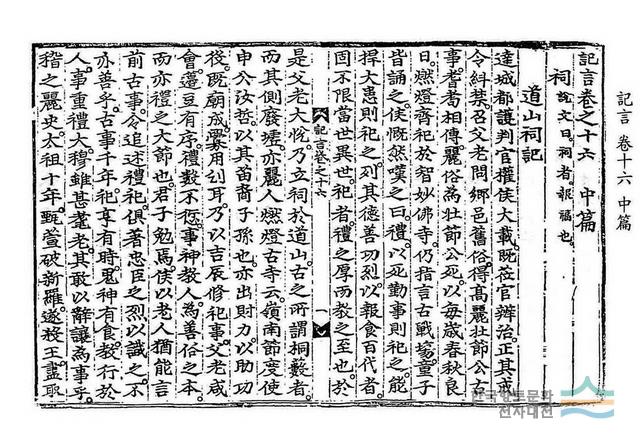 記言 卷十六 中篇
記言卷之十六 中篇
祠 說文曰祠者報福也
道山祠記
達城都護判官權侯大載旣莅官辨治正其戒
令糾禁召父老問鄉邑舊俗得高麗壯節公古
事耆耉相傳麗俗爲壯節公死以每歲春秋良
日燃燈齋祀於智妙佛寺仍指言古戰場童子
皆誦之侯慨然嘆之曰禮以死勤事則祀之能
捍大患則祀之列其德善功烈以報食百代者
固不限當世異世祀者禮之厚而敎之至也於
記言卷之十六 一
是父老大悅乃立祠於道山古之所謂桐藪者
而其側廢墟亦麗人燃燈古寺云嶺南節度使
申公汝哲以其苗裔子孫也亦出財力以助功
役旣廟成釁用刲耳乃以吉辰修祀事父老咸
會籩豆有序禮數不愆事神敎人爲善俗之本
而亦禮之大節也君子勉焉侯以老人猶能言
前古事令追述禮祀俱著忠臣之烈以識之不
亦善乎古事千年祀享有時鬼神有食敎行於
人事重禮大穆雖甚耄老其敢以辭讓爲事乎
稽之麗史太祖十年甄萱破新羅遂殺王盡取
한국향토문화
전자대전